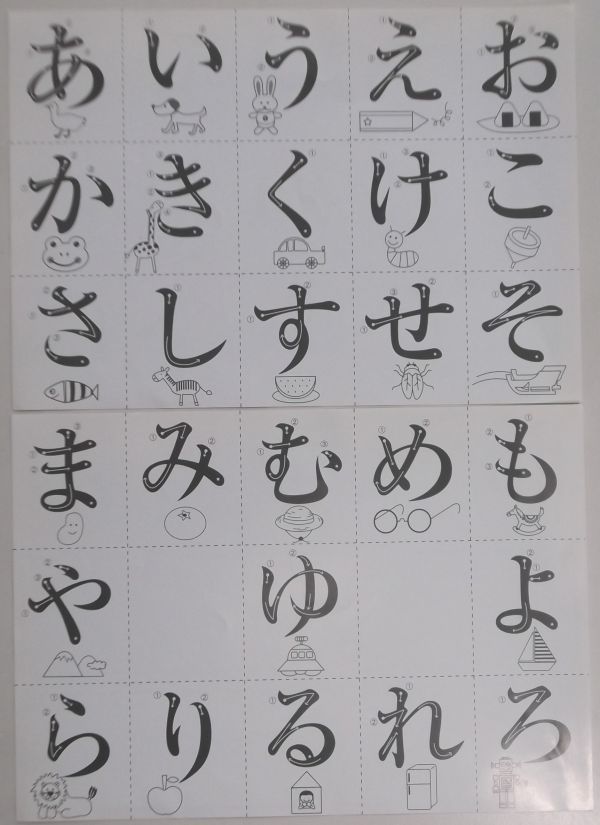 あ い う え お
か き く け こ
さ し す せ そ
ま み む め も
や ゆ よ
ら り る れ ろ